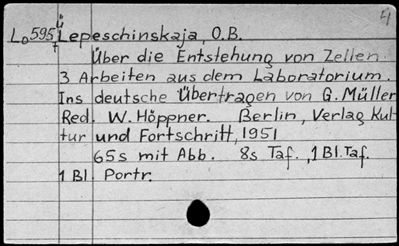 4
ü
Lo 595 Lepeschinskaja, O.B.
7
Über die Entstehung von Zellen.
3 Arbeiten aus dem Laboratorium.
Ins deutsche Übertragen von G. Müller
Red. W. Höppner. Berlin, Verlag Kul-
tur und Fortschritt, 1951
65s mit Abb. 8s Taf., 1 Bl. Taf.
1 Bl. Portr.